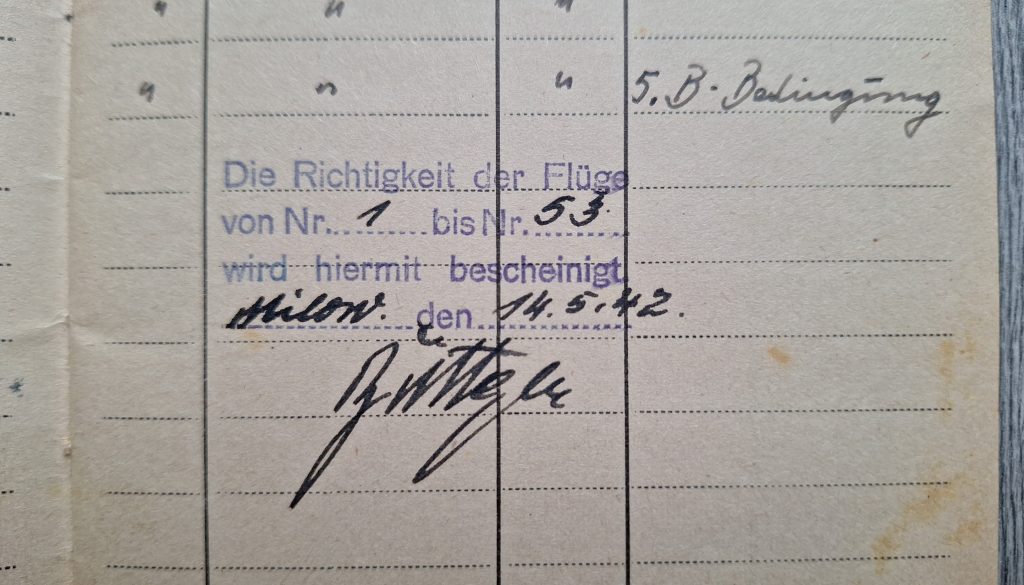 " " "
" " " 5. B-Bedingung
Die Richtigkeit der Flüge
von Nr. 1 bis Nr. 53.
wird hiermit bescheinigt.
Milow. den 14.5.42.